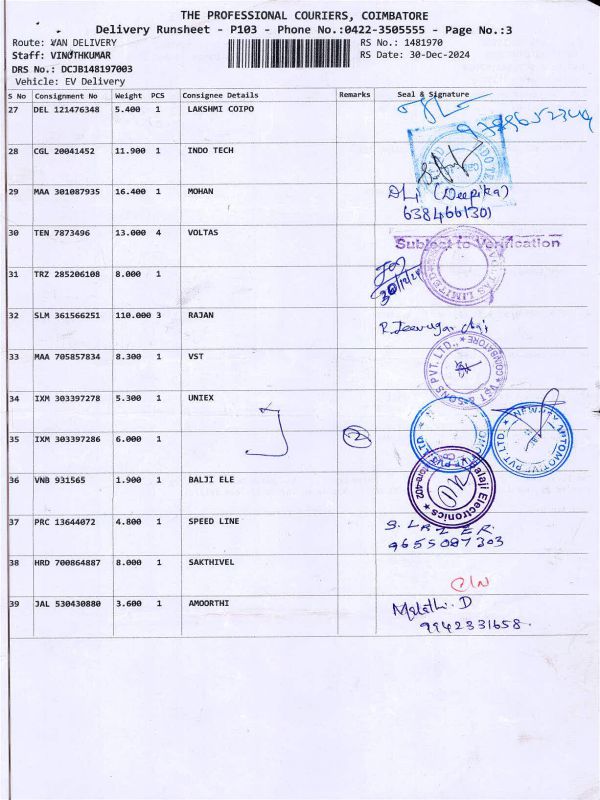 THE PROFESSIONAL COURIERS, COIMBATORE
Delivery Runsheet - P103 - Phone No.:0422-3505555 - Page No.:3
Route: VAN DELIVERY RS No.: 1481970
Staff: VINOTHKUMAR RS Date: 30-Dec-2024
DRS No.: DCJB148197003
Vehicle: EV Delivery
S No Consignment No Weight PCS Consignee Details Remarks Seal & Signature
27 DEL 121476348 5.400 1 LAKSHMI COIPO
28 CGL 20041452 11.900 1 INDO TECH
29 MAA 301087935 16.400 1 MOHAN
(Deepika)
6384661301
30 TEN 7873496 13.000 4 VOLTAS
Subject to Verification
31 TRZ 285206108 8.000 1
30/12/24
32 SLM 361566251 110.000 3 RAJAN
33 MAA 705857834 8.300 1 VST
VST & SONS PVT. LTD., COIMBATORE
34 IXM 303397278 5.300 1 UNIEX
35 IXM 303397286 6.000 1
2
36 VNB 931565 1.900 1 BALJI ELE
Balaji Electronics
37 PRC 13644072 4.800 1 SPEED LINE
9655087303
38 HRD 700864887 8.000 1 SAKTHIVEL
39 JAL 530430880 3.600 1 AMOORTHI
Malathi. D
9942331658.